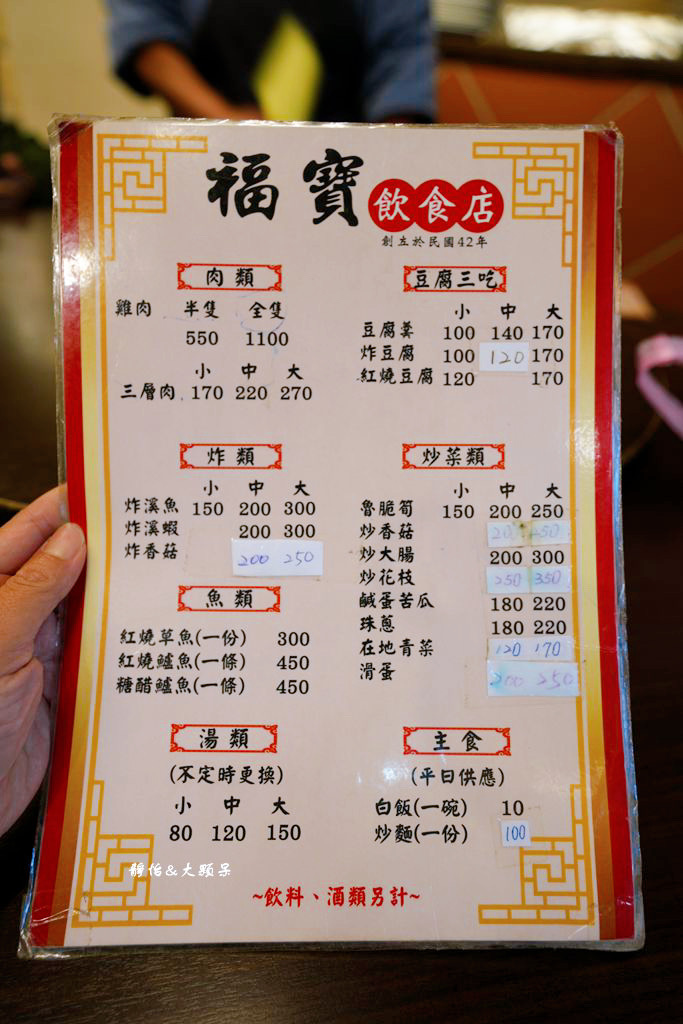 福寶飲食店
創立於民國42年
肉類
雞肉 半隻 全隻
550 1100
小 中 大
三層肉 170 220 270
豆腐三吃
小 中 大
豆腐羹 100 140 170
炸豆腐 100 120 170
紅燒豆腐 120 170
炸類
小 中 大
炸溪魚 150 200 300
炸溪蝦 200 300
炸香菇 200 250
炒菜類
小 中 大
魯脆筍 150 200 250
炒香菇 250
炒大腸 200 300
炒花枝 250 350
鹹蛋苦瓜 180 220
珠蔥 180 220
在地青菜 120 170
滑蛋 200 250
魚類
紅燒草魚(一份) 300
紅燒鱸魚(一條) 450
糖醋鱸魚(一條) 450
湯類
(不定時更換)
小 中 大
80 120 150
主食
(平日供應)
白飯(一碗) 10
炒麵(一份) 100
~飲料、酒類另計~
靜怡&大顆呆